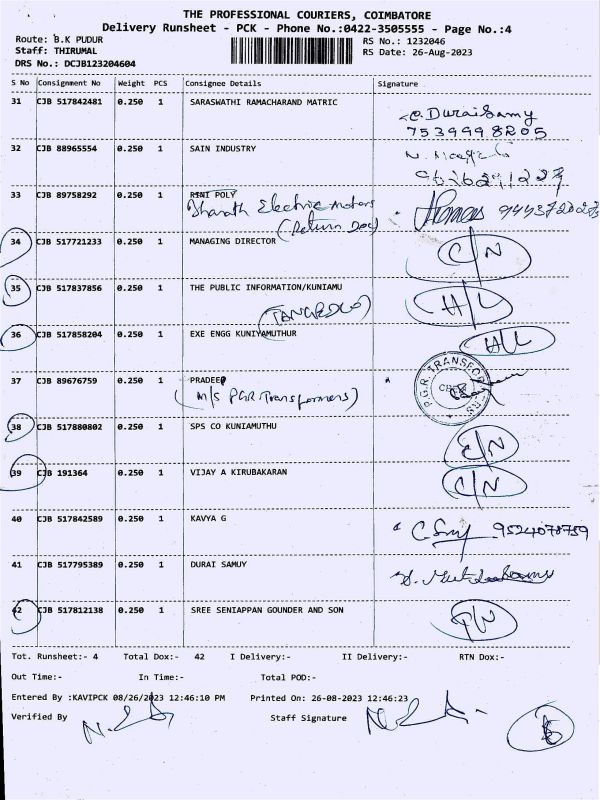 THE PROFESSIONAL COURIERS, COIMBATORE
Delivery Runsheet - PCK - Phone No.:0422-3505555 - Page No.:4
Route: B.K PUDUR RS No.: 1232046
Staff: THIRUMAL RS Date: 26-Aug-2023
DRS No.: DCJB123204604
S No Consignment No Weight PCS Consignee Details Signature
31 CJB 517842481 0.250 1 SARASWATHI RAMACHARAND MATRIC
C. Duraisamy
7539998205
32 CJB 88965554 0.250 1 SAIN INDUSTRY
33 CJB 89758292 0.250 1 RINI POLY
Bharath Electric motors
(Return Doc)
34 CJB 517721233 0.250 1 MANAGING DIRECTOR C/N
35 CJB 517837856 0.250 1 THE PUBLIC INFORMATION/KUNIAMU H/L
(TANGEDCO)
36 CJB 517858204 0.250 1 EXE ENGG KUNIYAMUTHUR H/L
37 CJB 89676759 0.250 1 PRADEEP
(M/S PGR Transformers) P.G.R. TRANSFORMERS CBE
38 CJB 517880802 0.250 1 SPS CO KUNIAMUTHU
39 CJB 191364 0.250 1 VIJAY A KIRUBAKARAN C/N
40 CJB 517842589 0.250 1 KAVYA G 9524078759
41 CJB 517795389 0.250 1 DURAI SAMUY
42 CJB 517812138 0.250 1 SREE SENIAPPAN GOUNDER AND SON
Tot. Runsheet:- 4 Total Dox:- 42 I Delivery:- II Delivery:- RTN Dox:-
Out Time:- In Time:- Total POD:-
Entered By :KAVIPCK 08/26/2023 12:46:10 PM Printed On: 26-08-2023 12:46:23
Verified By Staff Signature